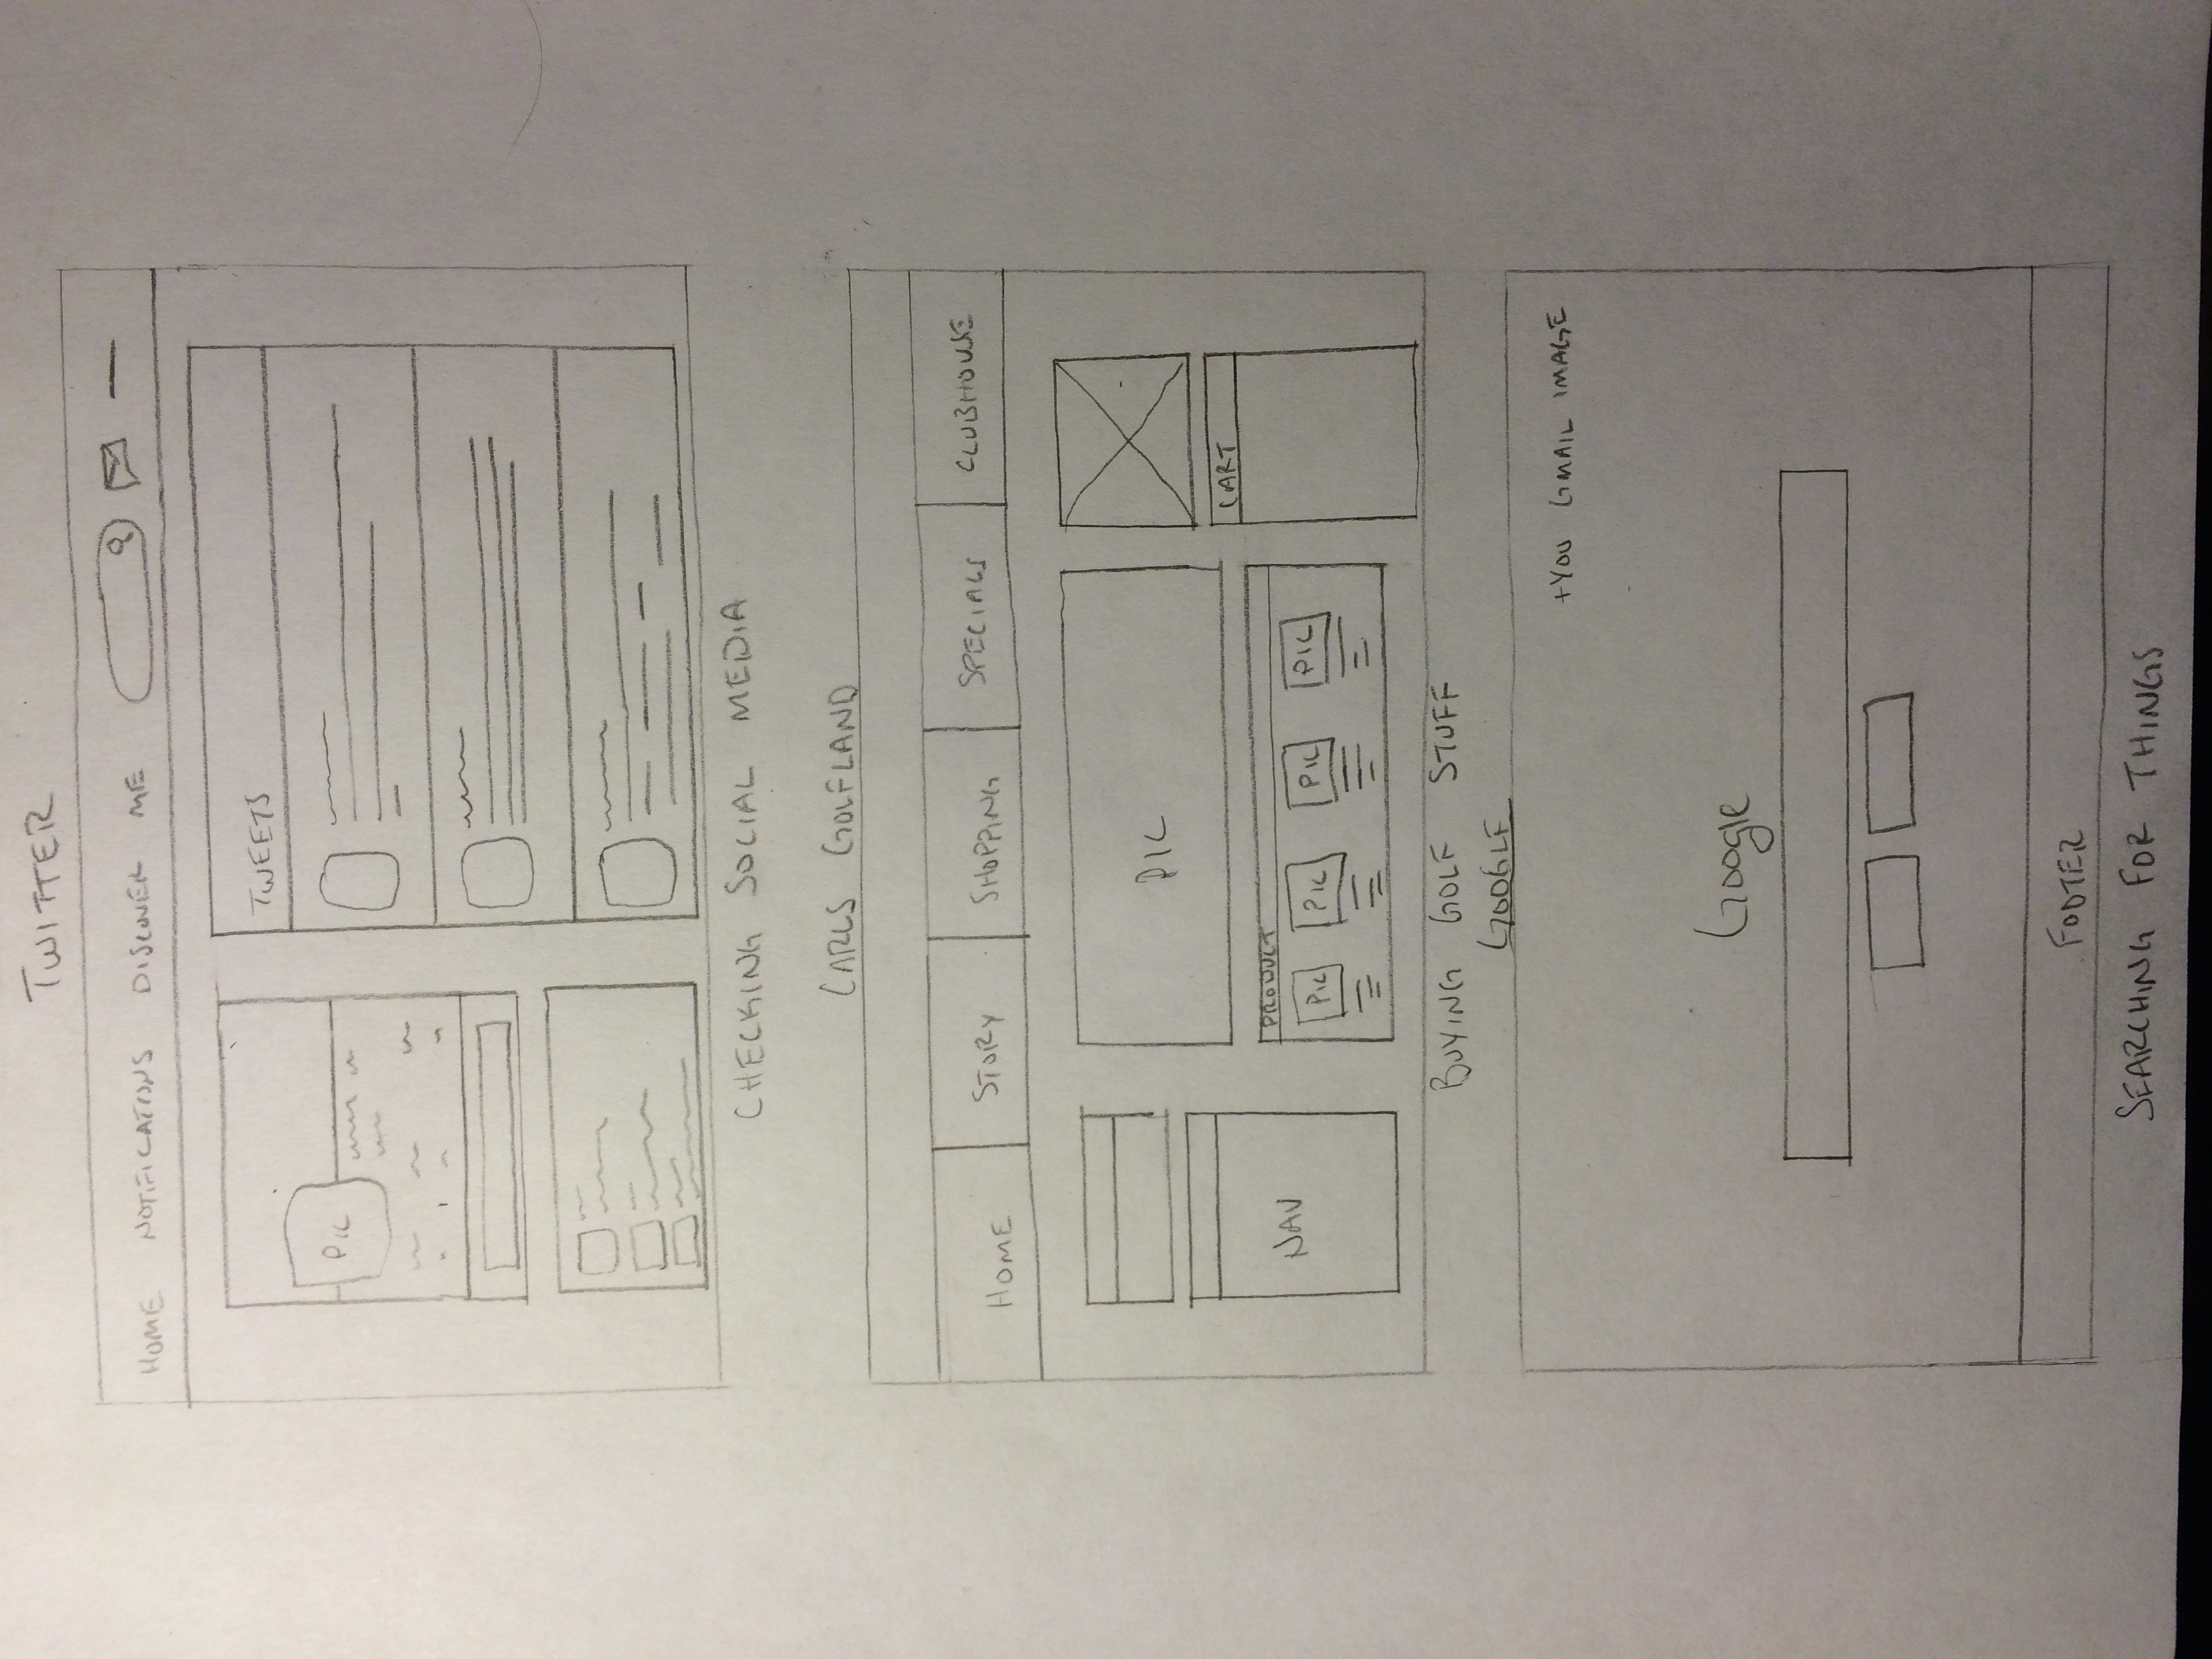 TWITTER
HOME NOTIFICATIONS DISCOVER ME
TWEETS
PIC
CHECKING SOCIAL MEDIA
CARLS GOLFLAND
HOME STORY SHOPPING SPECIALS CLUBHOUSE
PIC
CART
NAV
PRODUCT
PIC PIC PIC PIC
BUYING GOLF STUFF
GOOGLE
+YOU GMAIL IMAGE
Google
FOOTER
SEARCHING FOR THINGS